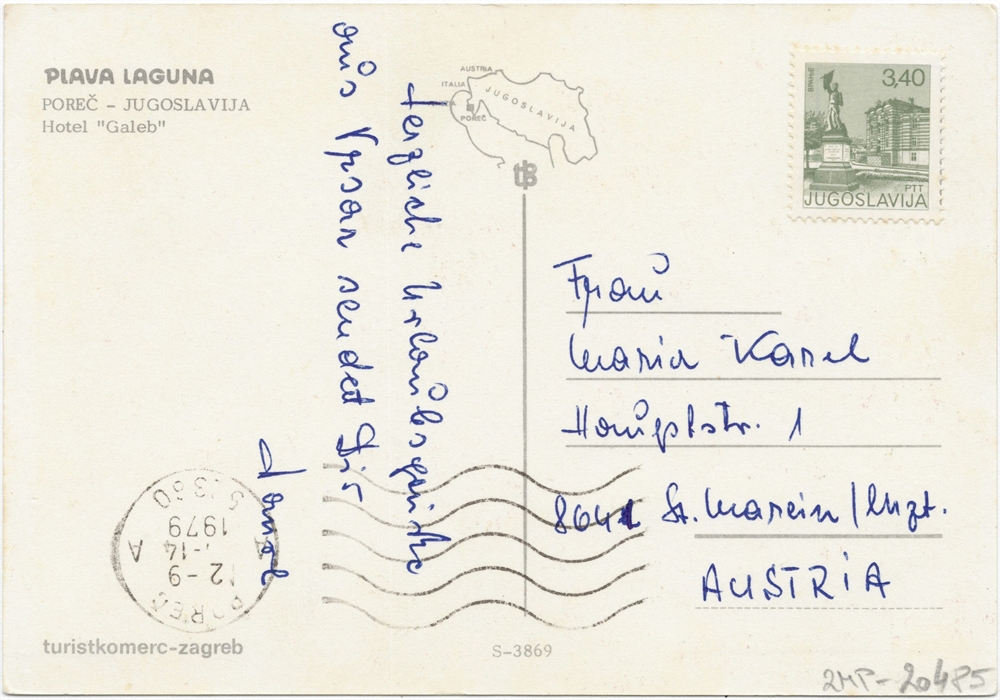 PLAVA LAGUNA
POREČ – JUGOSLAVIJA
Hotel "Galeb"
AUSTRIA
ITALIA
JUGOSLAVIJA
POREČ
tB
3,40
VRANJE
PTT
JUGOSLAVIJA
Herzliche Urlaubsgrüße
aus Vrsar sendet Dir
Frau
Maria Karel
Hauptstr. 1
8641 St. Marein/Mzt.
AUSTRIA
51360
1979
-14
12-9
A A
POREČ
turistkomerc-zagreb
S-3869
2MP-20485